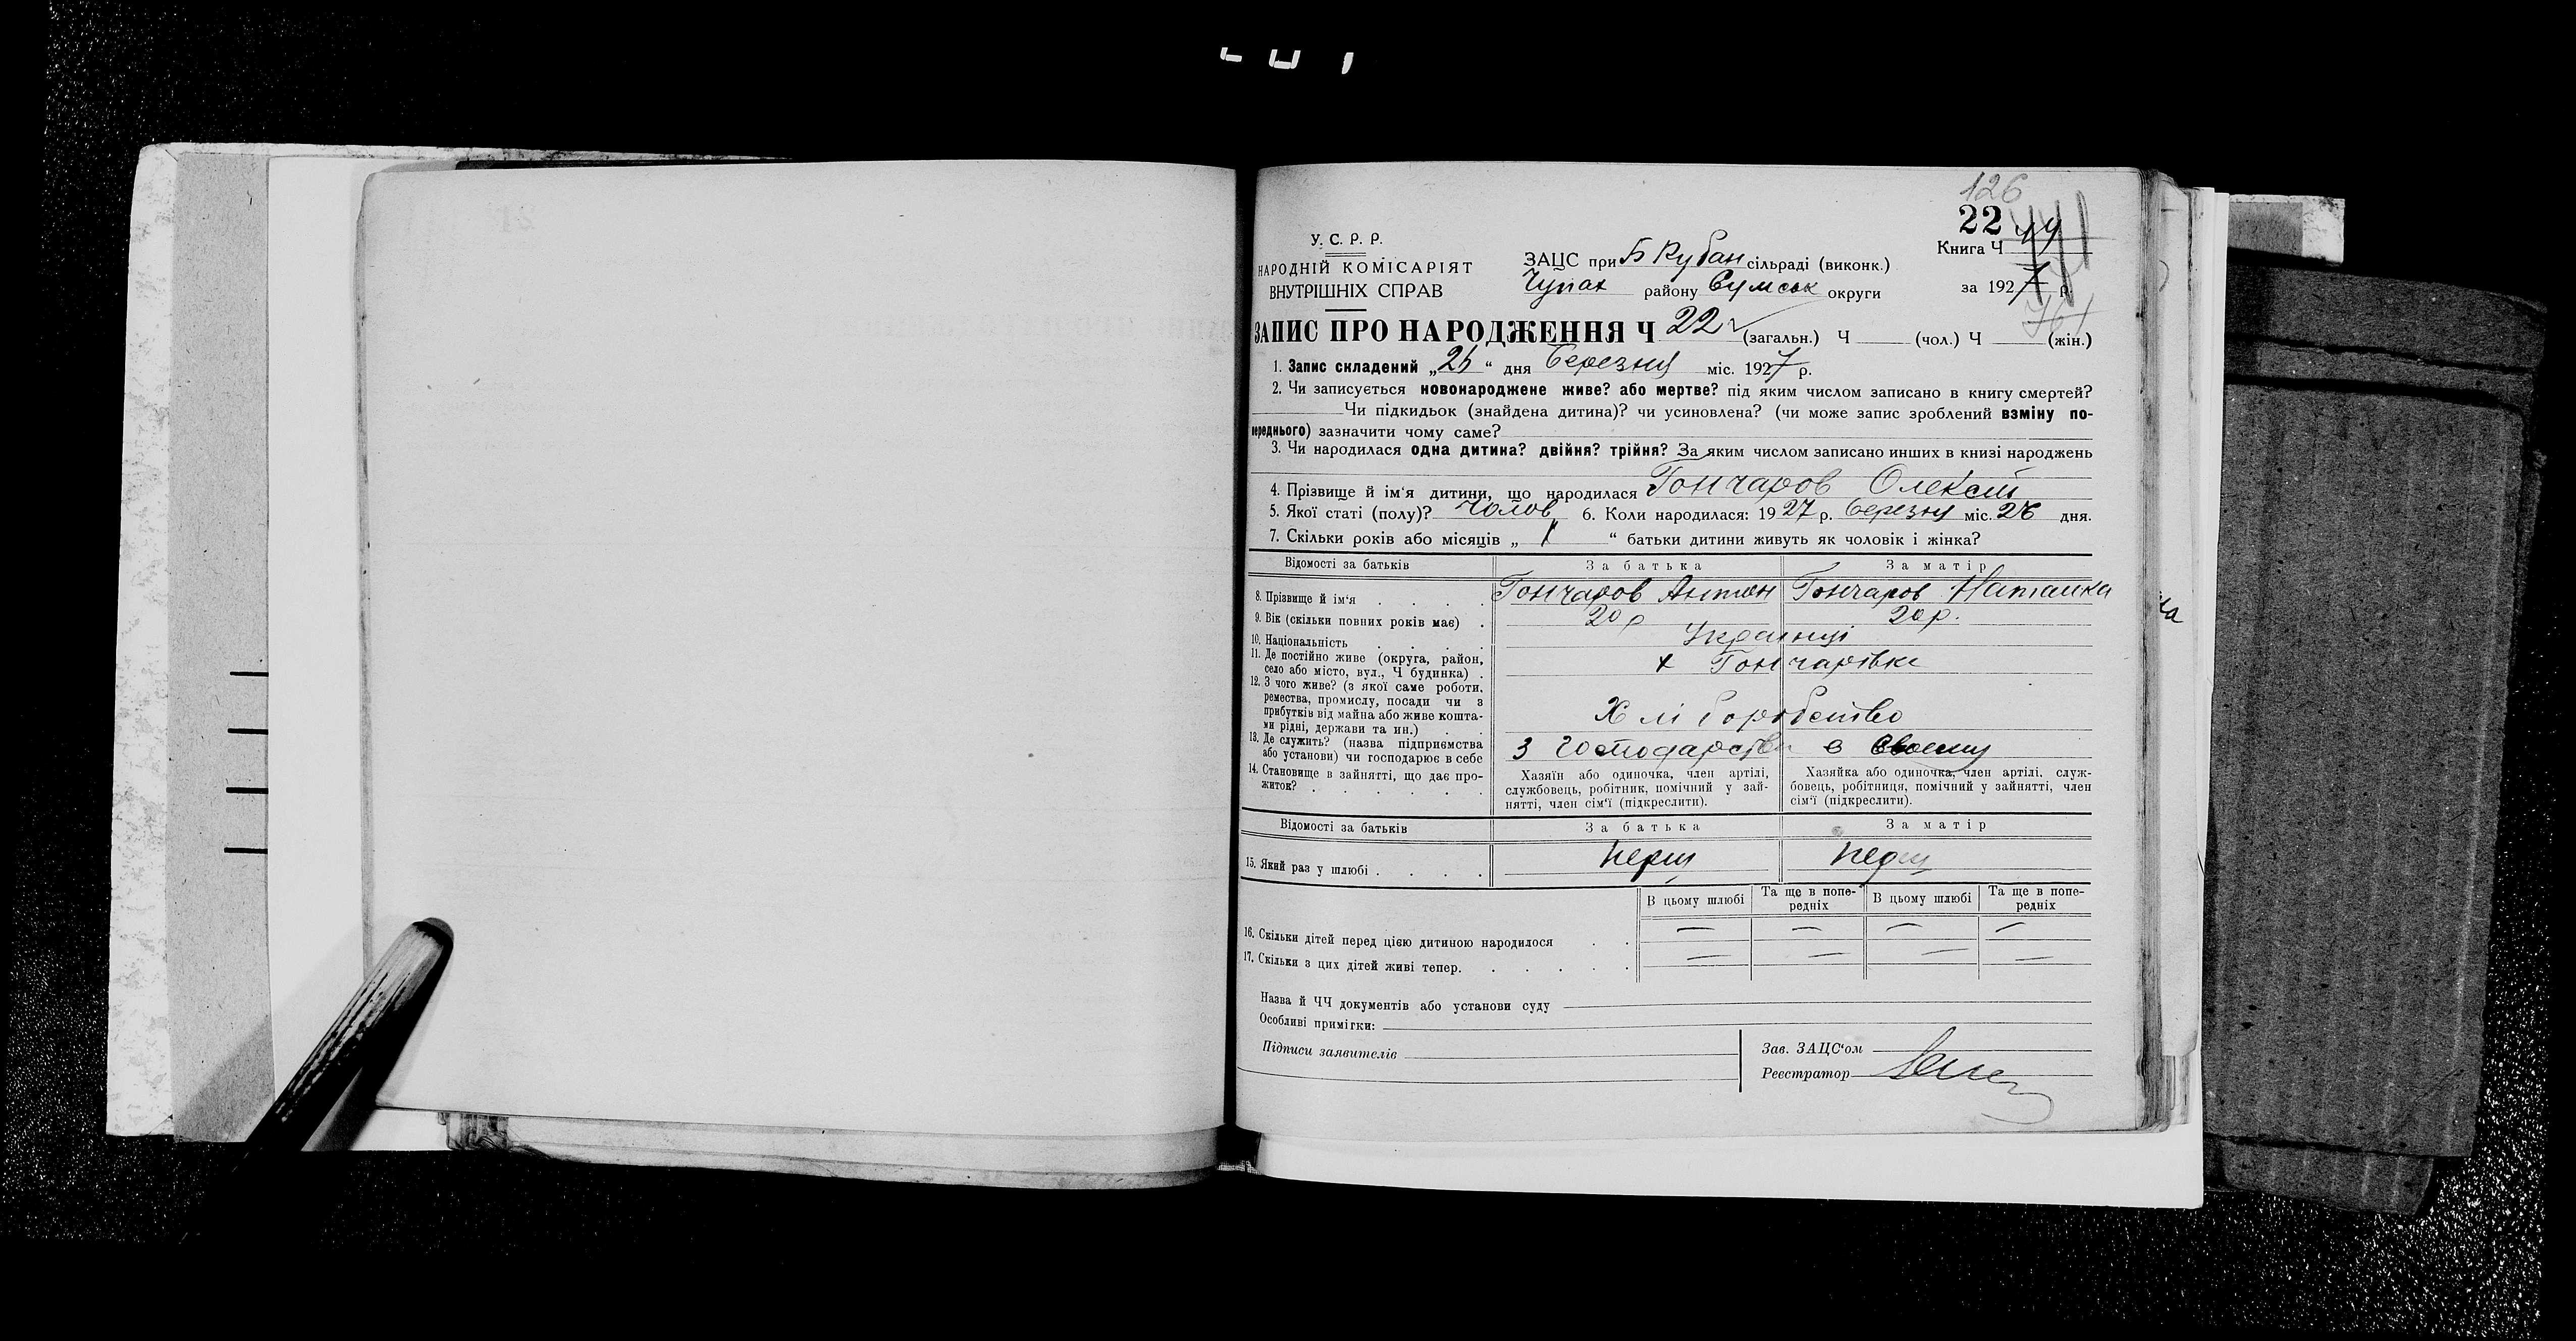 126
22
У. С. Р. Р.
НАРОДНІЙ КОМІСАРІЯТ
ВНУТРІШНІХ СПРАВ
ЗАЦС при Б Кубан сільраді (виконк.)
Чупах району Сумськ округи
Книга Ч 49
за 1927 р.
ЗАПИС ПРО НАРОДЖЕННЯ Ч 22 (загальн.) Ч (чол.) Ч (жін.)
1. Запис складений „ “ дня березня міс. 1927 р.
2. Чи записується новонароджене живе? або мертве? під яким числом записано в книгу смертей?
Чи підкидьок (знайдена дитина)? чи усиновлена? (чи може запис зроблений взміну по-
переднього) зазначити чому саме?
3. Чи народилася одна дитина? двійня? трійня? За яким числом записано инших в книзі народжень
4. Прізвище й ім‘я дитини, що народилася Гончаров Олексій
5. Якої статі (полу)? Чолов 6. Коли народилася: 1927 р. березня міс. дня.
7. Скільки років або місяців „ 1 “ батьки дитини живуть як чоловік і жінка?
Відомості за батьків За батька За матір
8. Прізвище й ім‘я . . . . Гончаров Антон Гончаров Наталка
9. Вік (скільки повних років має) . 20 р 20 р.
10. Національність . . . . Українці
11. Де постійно живе (округа, район,
село або місто, вул., Ч будинка) . х Гончарівка
12. З чого живе? (з якої саме роботи,
ремества, промислу, посади чи з
прибутків від майна або живе кошта-
ми рідні, держави та ин.) . . Хліборобство
13. Де служить? (назва підприємства
або установи) чи господарює в себе з господарства в своєму
14. Становище в зайнятті, що дає про-
житок? . . . . . .
Хазяїн або одиночка, член артілі,
службовець, робітник, помічний у зай-
нятті, член сім‘ї (підкреслити).
Хазяйка або одиночка, член артілі, служ-
бовець, робітниця, помічний у зайнятті, член
сім‘ї (підкреслити).
Відомості за батьків За батька За матір
15. Який раз у шлюбі . . . . перш перш
В цьому шлюбі Та ще в попе-
редніх В цьому шлюбі Та ще в попе-
редніх
16. Скільки дітей перед цією дитиною народилося . . — — — —
17. Скільки з цих дітей живі тепер. . . . . . — — — —
Назва й ЧЧ документів або установи суду
Особливі примітки:
Підписи заявителів
Зав. ЗАЦС‘ом
Реєстратор
на